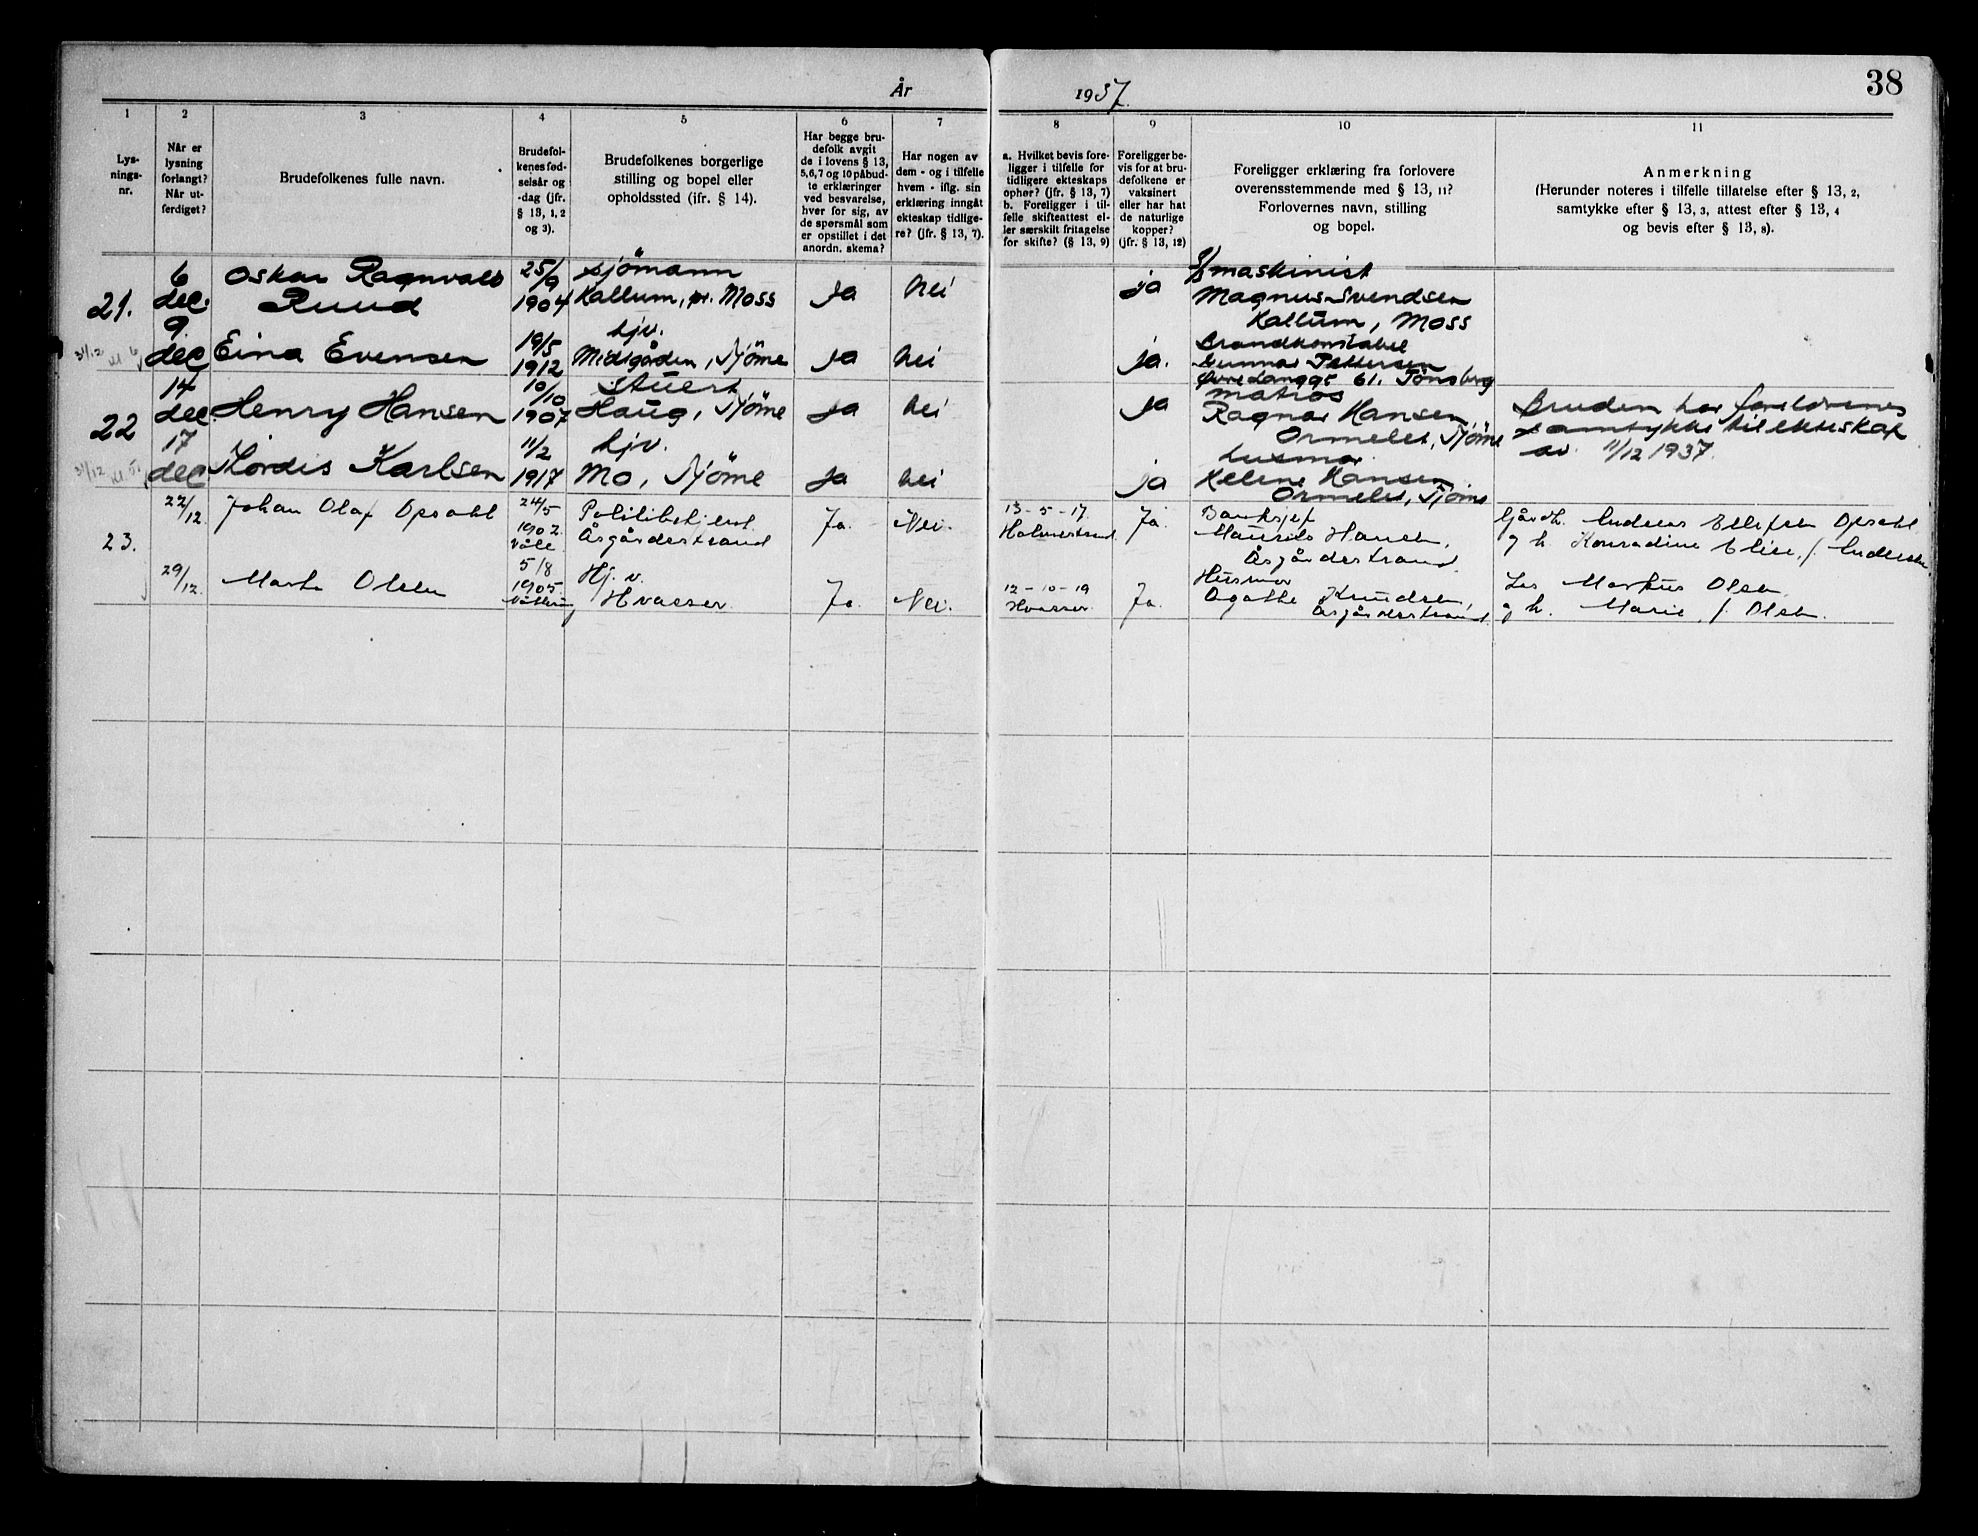 År 1937.
38
1
2
3
4
5
6
7
8
9
10
11
Lys-
nings-
nr.
Når er
lysning
forlangt?
Når ut-
ferdiget?
Brudefolkenes fulle navn.
Brudefol-
kenes fød-
selsår og
-dag (jfr.
§ 13, 1, 2
og 3).
Brudefolkenes borgerlige
stilling og bopel eller
opholdssted (ifr. § 14).
Har begge bru-
defolk avgit
de i lovens § 13,
5,6,7 og 10 påbud-
te erklæringer
ved besvarelse,
hver for sig, av
de spørsmål som
er opstillet i det
anordn. skema?
Har nogen av
dem - og i tilfelle
hvem - iflg. sin
erklæring inngåt
ekteskap tidlige-
re? (jfr. § 13, 7).
a. Hvilket bevis fore-
ligger i tilfelle for
tidligere ekteskaps
ophør? (jfr. § 13, 7)
b. Foreligger i til-
felle skifteattest el-
ler særskilt fritagelse
for skifte? (§ 13, 9)
Foreligger be-
vis for at bru-
defolkene er
vaksinert
eller har hat
de naturlige
kopper?
(jfr. § 13, 12)
Foreligger erklæring fra forlovere
overensstemmende med § 13, 11?
Forlovernes navn, stilling
og bopel.
Anmerkning
(Herunder noteres i tilfelle tillatelse efter § 13, 2,
samtykke efter § 13, 3, attest efter § 13, 4
og bevis efter § 13, 8).
21.
6
dec.
Oskar Ragnvald
Ruud
25/9
1904
Sjömann
Kallum, pr. Moss
ja
nei
ja
maskinist
Magnus Svendsen
Kallum, Moss
31/12
9.
dec
Eina Evensen
19/5
1912
hjv.
Midtgården, Tjöme
ja
nei
ja.
Brandkonstabel
Gunnar Pettersen
Øvre Langgt 61. Tönsberg
22
14
dec
Henry Hansen
10/10
1907
Stuert
Haug, Tjöme
ja
nei
ja
matros
Ragnar Hansen
Ormelet, Tjöme
Bruden har foreldrenes
samtykke til ekteskap
av 11/12 1937.
31/12
17
dec
Hördis Karlsen
11/2
1917
hjv.
Mo, Tjöme
ja
nei
ja
husmor
Helene Hansen
Ormelet, Tjöme
23.
22/12.
Johan Olaf Opsahl
24/5
1902.
Våle
Politibetjent.
Åsgårdestrand
Ja.
Nei.
13-5-17.
Holmestrand
Ja.
Banksjef
Mauritz Hansen,
Åsgårdestrand.
Gårdb. Andreas Ellefsen Opsahl
og h. Konradine Elise, f. Andersen.
29/12.
Marta Olsen
5/8
1905
Hj. v.
Hvasser.
Ja.
Nei.
12-10-19
Hvasser.
Ja.
Husmor
Agathe Knudsen,
Åsgårdestrand.
Los Markus Olsen
og h. Marie, f. Olsen.